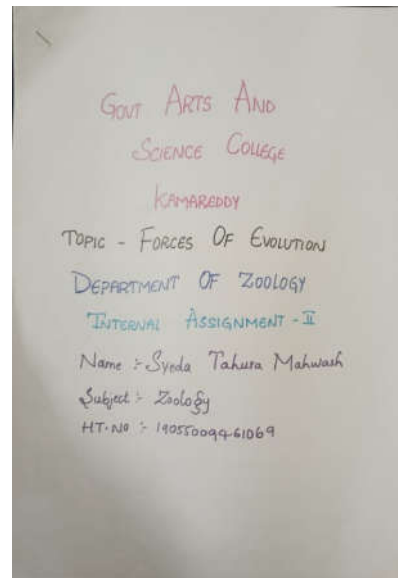 GOVT ARTS AND
SCIENCE COLLEGE
KAMAREDDY
TOPIC - FORCES OF EVOLUTION
DEPARTMENT OF ZOOLOGY
INTERNAL ASSIGNMENT - II
Name :- Syeda Tahura Mahwash
Subject :- Zoology
HT.NO :- 19055009461069